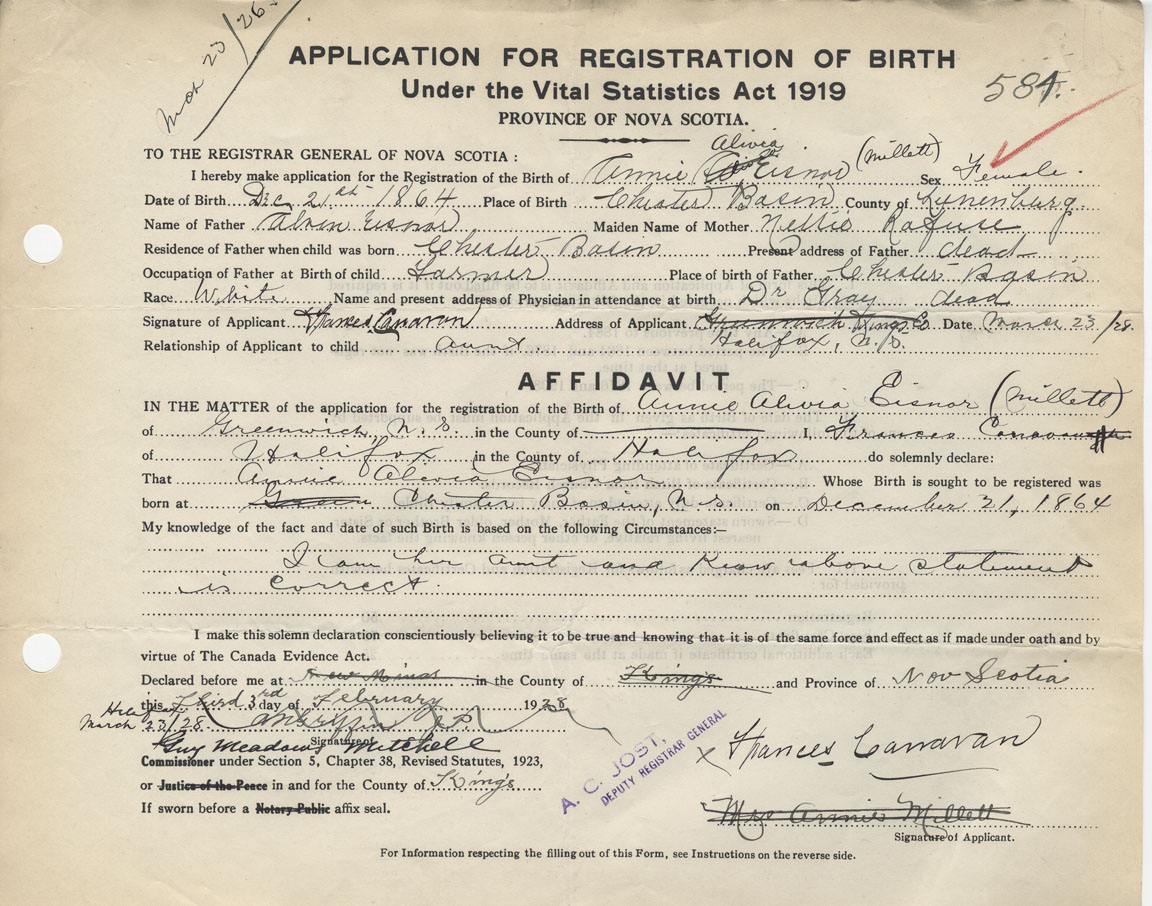 Mar 23/26.
APPLICATION FOR REGISTRATION OF BIRTH
584.
Under the Vital Statistics Act 1919
PROVINCE OF NOVA SCOTIA.
Alivia
TO THE REGISTRAR GENERAL OF NOVA SCOTIA :
I hereby make application for the Registration of the Birth of Annie Eisnor (Millett) Sex Female.
Date of Birth Dec 21st 1864 Place of Birth Chester Basin County of Lunenburg.
Name of Father Alvin Eisnor Maiden Name of Mother Nettie Rafuse
Residence of Father when child was born Chester Basin Present address of Father dead
Occupation of Father at Birth of child Farmer Place of birth of Father Chester Basin
Race White Name and present address of Physician in attendance at birth Dr Gray dead
Signature of Applicant Frances Canavan Address of Applicant Greenwich Kings Co Date March 23/28.
Halifax, N.S.
Relationship of Applicant to child aunt
AFFIDAVIT
IN THE MATTER of the application for the registration of the Birth of Annie Alivia Eisnor (Millett)
of Greenwich, N.S. in the County of I, Frances Canavan
of Halifax in the County of Halifax do solemnly declare:
That Annie Alivia Eisnor Whose Birth is sought to be registered was
born at Chester Basin, N.S. on December 21, 1864
My knowledge of the fact and date of such Birth is based on the following Circumstances:—
I am her aunt and know above statement
is correct.
I make this solemn declaration conscientiously believing it to be true and knowing that it is of the same force and effect as if made under oath and by
virtue of The Canada Evidence Act.
Declared before me at New Minas in the County of Kings and Province of Nov Scotia
this Third 3rd day of February 1928
Halifax
March 23/28.
Guy Meadows Mitchell
Signature of
Frances Canavan
Commissioner under Section 5, Chapter 38, Revised Statutes, 1923,
or Justice of the Peace in and for the County of Kings
A. C. JOST,
DEPUTY REGISTRAR GENERAL
If sworn before a Notary Public affix seal.
Mrs Annie Millett
Signature of Applicant.
For Information respecting the filling out of this Form, see Instructions on the reverse side.